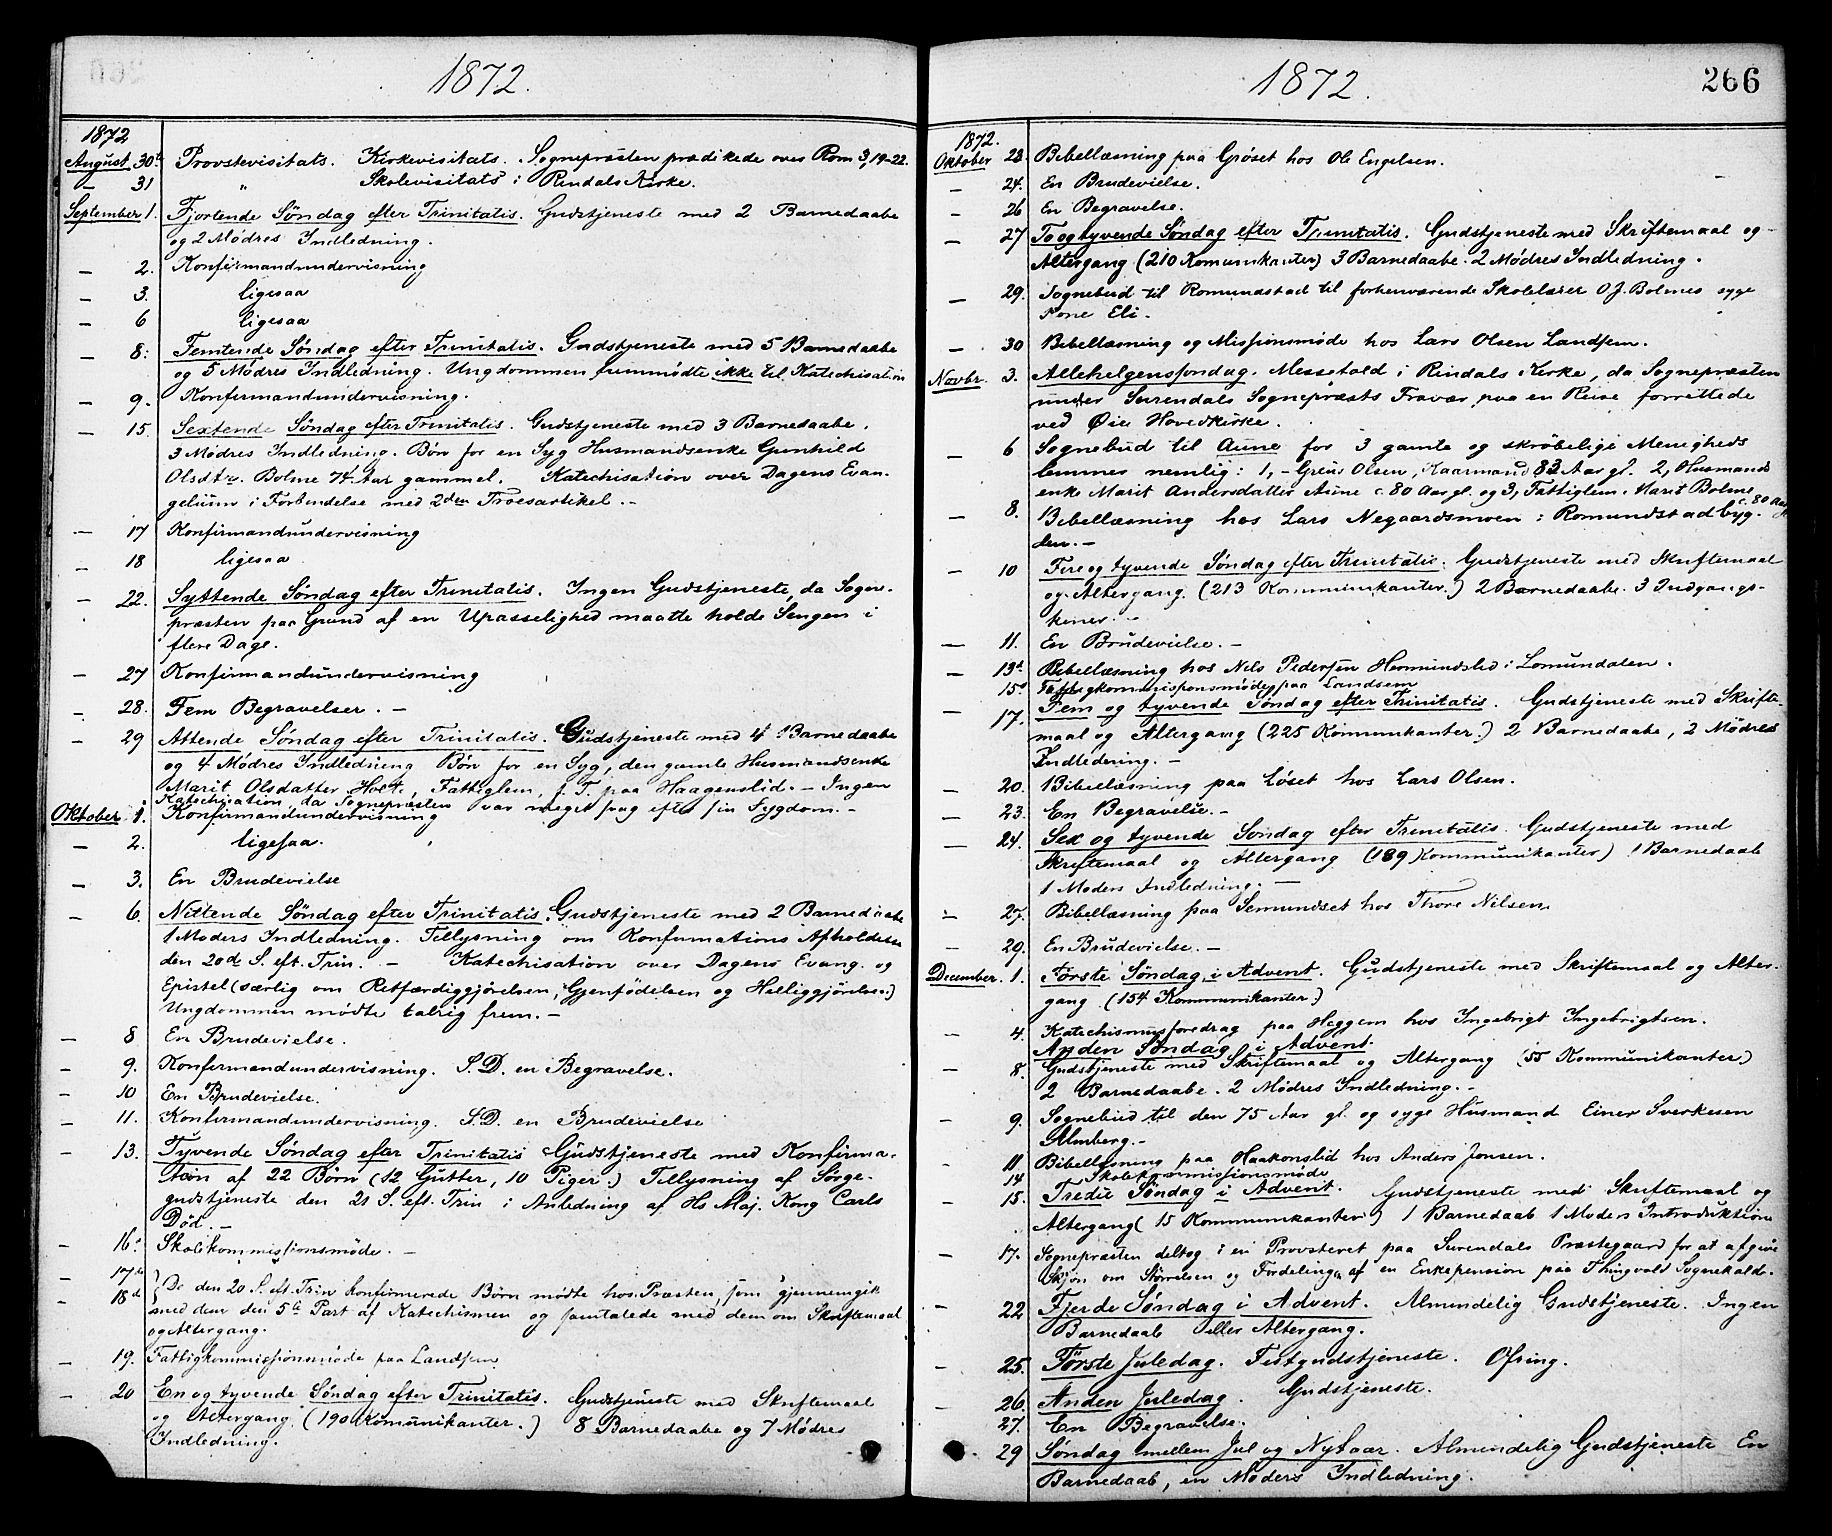 1872.
1872
August 30te Provstevisitats. Kirkevisitats. Sognepræsten prædikede over Rom 3, 19-22.
— 31 " Skolevisitats i Rindals Kirke.
September 1. Fjortende Søndag efter Trinitatis. Gudstjeneste med 2 Barnedaabe
og 2 Mødres Indledning.
— 2. Konfirmandundervisning
— 3. ligesaa
— 6 ligesaa
— 8. Femtende Søndag efter Trinitatis. Gudstjeneste med 5 Barnedaabe
og 5 Mødres Indledning. Ungdommen fremmødte ikke til Katechisation
— 9. Konfirmandundervisning.
— 15. Sextende Søndag efter Trinitatis. Gudstjeneste med 3 Barnedaabe.
3 Mødres Indledning. Bøn for en Syg Husmandsenke Gunhild
Olsdtr. Bolme 74 Aar gammel. Katechisation over Dagens Evan-
gelium i Forbindelse med 2den Troesartikel. —
— 17 Konfirmandundervisning
— 18 ligesaa
— 22. Syttende Søndag efter Trinitatis. Ingen Gudstjeneste, da Sogne-
præsten paa Grund af en Upasselighed maatte holde Sengen i
flere Dage.
— 27 Konfirmandundervisning
— 28. Fem Begravelser. —
— 29 Attende Søndag efter Trinitatis. Gudstjeneste med 4 Barnedaabe
og 4 Mødres Indledning Bøn for en Syg, den gamle Husmandsenke
Marit Olsdatter Holt, Fattiglem, f. T. paa Haagenslid. — Ingen
Katechisation, da Sognepræsten var meget svag efter sin Sygdom. —
Oktober 1. Konfirmandundervisning
— 2. ligesaa.
— 3. En Brudevielse
— 6. Nittende Søndag efter Trinitatis. Gudstjeneste med 2 Barnedaabe
1 Moders Indledning. Tillysning om Konfirmations Afholdelse
den 20de S. eft. Trin. — Katechisation over Dagens Evang. og
Epistel (særlig om Retfærdiggjørelsen, Gjenfødelsen og Helliggjørelsen.)
Ungdommen mødte talrig frem. —
— 8 En Brudevielse.
— 9. Konfirmandundervisning. S.D. en Begravelse.
— 10 En Brudevielse.
— 11. Konfirmandundervisning. S.D. en Brudevielse
— 13. Tyvende Søndag efter Trinitatis Gudstjeneste med Konfirma-
tion af 22 Børn (12 Gutter, 10 Piger.) Tillysning af Sørge-
gudstjeneste den 21 S. eft. Trin i Anledning af Hs Maj. Kong Carls
Død. —
— 16. Skolekommissionsmøde. —
— 17de
— 18d De den 20 S. eft. Trin konfirmerede Børn mødte hos Præsten, som gjennemgik
med dem den 5te Part af Katechismen og samtalede med dem om Skriftemaal
og Altergang.
— 19. Fattigkommissionsmøde paa Landsem
— 20 En og tyvende Søndag efter Trinitatis. Gudstjeneste med Skriftemaal
og Altergang. (190 Komunikanter.) 8 Barnedaabe og 7 Mødres
Indledning.
1872. 266
1872.
Oktober 23. Bibellæsning paa Grøset hos Ole Engelsen.
— 24. En Brudevielse.
— 26 En Begravelse.
— 27 To og tyvende Søndag efter Trinitatis. Gudstjeneste med Skriftemaal og
Altergang (210 Komunikanter) 3 Barnedaabe. 2 Mødres Indledning.
— 29. Sognebud til Romundstad til forhenværende Skolelærer O. J. Bolmes syge
Kone Eli.
— 30 Bibellæsning og Missionsmøde hos Lars Olsen Landsem.
Novbr. 3. Allehelgenssøndag. Messefald i Rindals Kirke, da Sognepræsten
under Surendals Sognepræsts Fravær paa en Reise forrettede
ved Øie Hovedkirke.
— 6 Sognebud til Aune for 3 gamle og skrøbelige Menigheds
lemmer nemlig: 1, - Greus Olsen, Kaarmand 83 Aar gl. 2, Husmands
enke Marit Andersdatter Aune c. 80 Aar gl. og 3, Fattiglem. Marit Bolme c. 80 Aar gl.
— 8. Bibellæsning hos Lars Negaardsmoen i Romundstadbyg-
den. —
— 10 Fire og tyvende Søndag efter Trinitatis. Gudstjeneste med Skriftemaal
og Altergang. (213 Kommunikanter.) 2 Barnedaabe. 3 Indgangs-
koner. —
— 11. En Brudevielse. —
— 13d. Bibellæsning hos Nils Pedersen Hermundslid i Lomundalen.
15d Fattigkommissionsmøde paa Landsem
— 17. Fem og tyvende Søndag efter Trinitatis. Gudstjeneste med Skrifte-
maal og Altergang (225 Kommunikanter.) 2 Barnedaabe, 2 Mødres
Indledning. —
— 20. Bibellæsning paa Løset hos Lars Olsen.
— 23. En Begravelse. —
— 24. Sex og tyvende Søndag efter Trinitatis. Gudstjeneste med
Skriftemaal og Altergang (189 Kommunikanter) 1 Barnedaab
1 Moders Indledning. —
— 27. Bibellæsning paa Semundset hos Thore Nilsen
— 29. En Brudevielse. —
December. 1. Første Søndag i Advent. Gudstjeneste med Skriftemaal og Alter-
gang (154 Kommunikanter.)
— 4. Katechismusforedrag paa Heggem hos Ingebrigt Ingebrigtsen.
Anden Søndag i Advent.
— 8. Gudstjeneste med Skriftemaal og Altergang (55 Kommunikanter.)
2 Barnedaabe. 2 Mødres Indledning. —
— 9. Sognebud til den 75 Aar gl. og syge Husmand Einer Sverkesen
Almberg. —
— 11 Bibellæsning paa Haakonslid hos Anders Jonsen.
14 Skolekommissionsmøde
— 15. Tredie Søndag i Advent. Gudstjeneste med Skriftemaal og
Altergang (15 Kommunikanter) 1 Barnedaab 1 Moders Introduktion
— 17. Sognepræsten deltog i en Provsteret paa Surendals Præstegaard for at afgive
Skjøn om Størrelsen og Fordelingen af en Enkepension paa Thingvold Sognekald.
— 22 Fjerde Søndag i Advent. Almindelig Gudstjeneste. Ingen
Barnedaab eller Altergang.
— 25. Første Juledag. Festgudstjeneste. Ofring.
— 26. Anden Juledag. Gudstjeneste.
— 27. En Begravelse.
— 29 Søndag mellem Jul og Nytaar. Almindelig Gudstjeneste En
Barnedaab, en Moders Indledning.